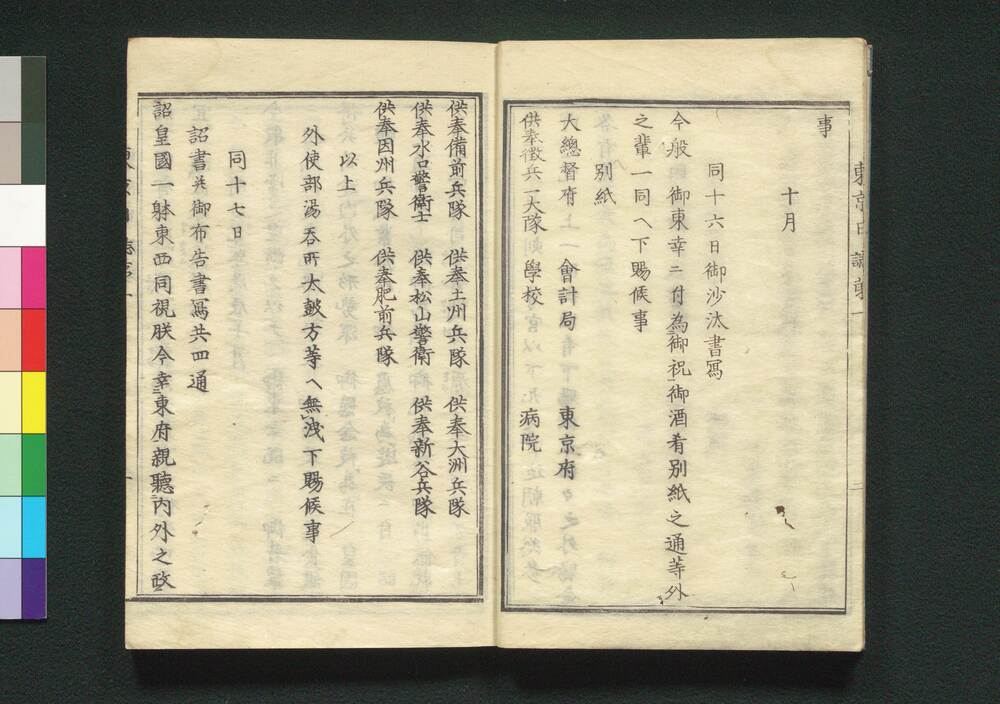 事
十月
同十六日御沙汰書寫
今般 御東幸ニ付為御祝御酒肴別紙之通等外
之輩一同ヘ下賜候事
別紙
大總督府 會計局 東京府
供奉徴兵一大隊 學校 病院
供奉備前兵隊 供奉土州兵隊 供奉大洲兵隊
供奉水口警衛士 供奉松山警衛 供奉新谷兵隊
供奉因州兵隊 供奉肥前兵隊
以上
外使部湯呑所太皷方等ヘ無洩下賜候事
同十七日
詔書并御布告書寫共四通
詔皇國一躰東西同視朕今幸東府親聽内外之政